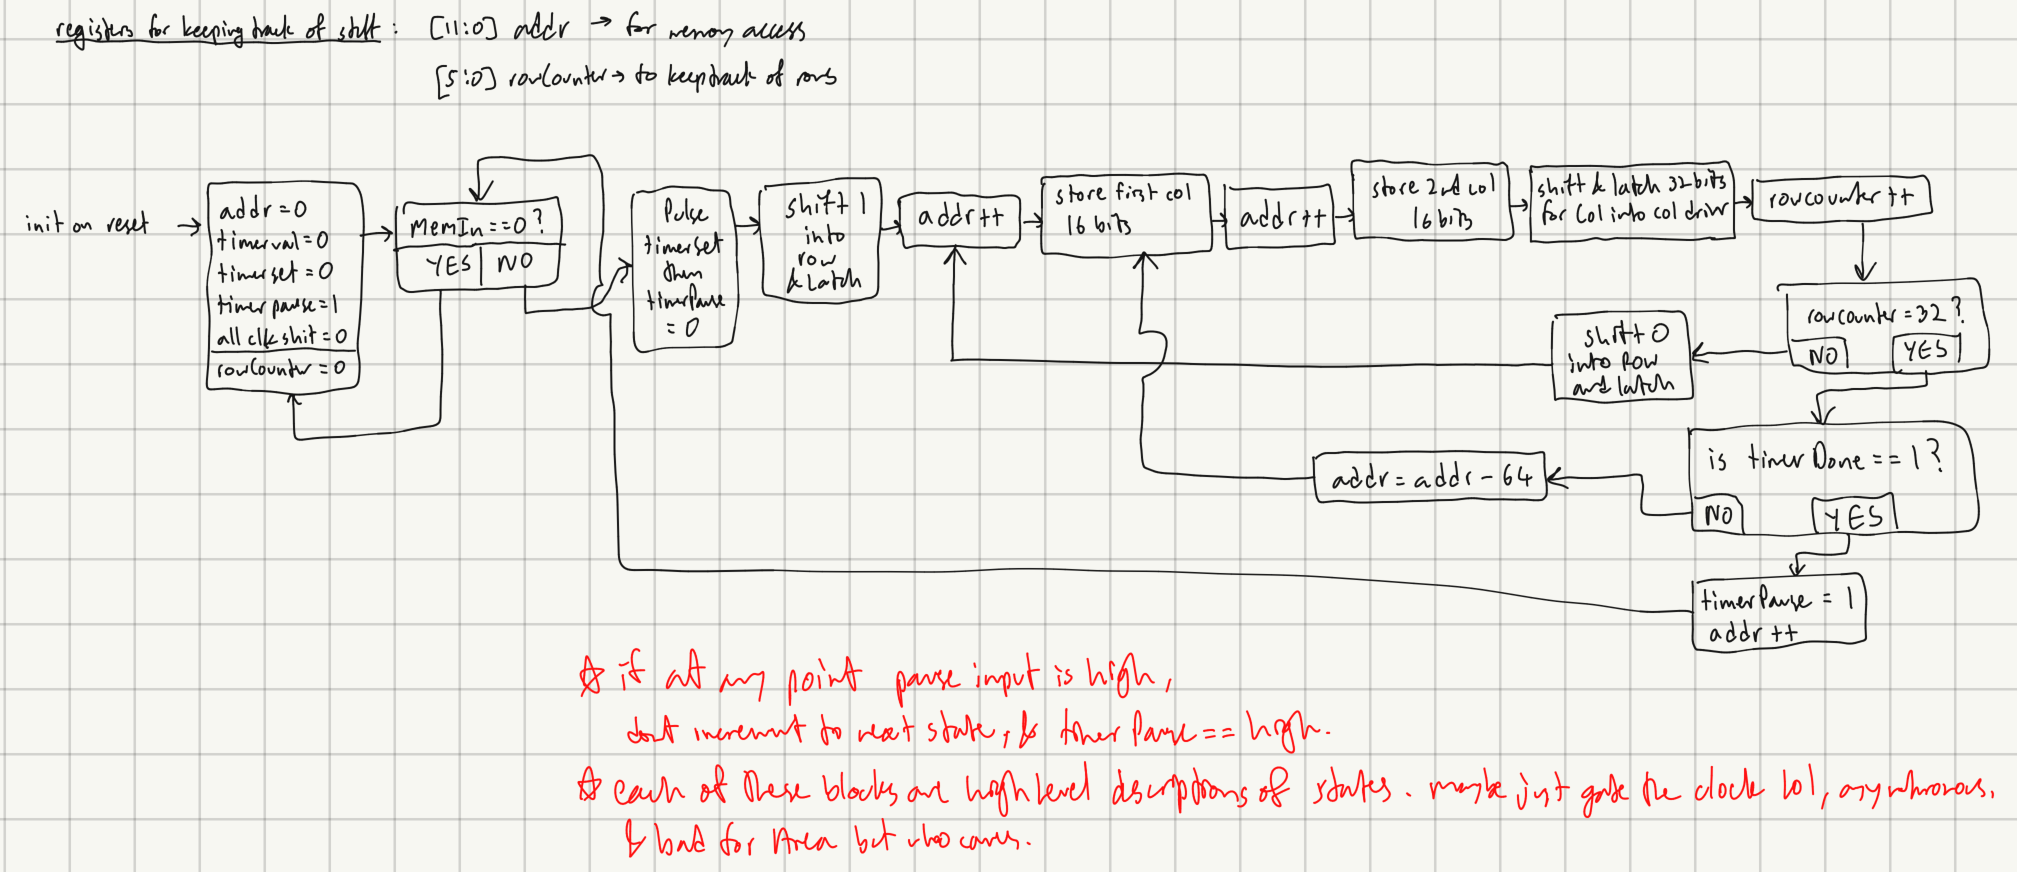 registers for keeping track of shift : [11:0] addr → for memory access
[5:0] rowCounter → to keep track of rows
init on reset →
addr=0
timerval=0
timerset=0
timerpause=1
all clk shit=0
rowCounter=0
MemIn==0?
YES | NO
Pulse
timerset
then
timerPause
=0
shift 1
into
row
& Latch
addr++
store first col
16 bits
addr++
store 2nd col
16 bits
shift & latch 32 bits
for Col into col driver
rowcounter++
rowcounter=32?
NO YES
shift 0
into Row
and latch
is timerDone==1?
NO YES
addr=addr-64
timerPause = 1
addr++
☆ if at any point pause input is high,
dont increment to next state, & timerPause== high.
☆ each of these blocks are high level descriptions of states. maybe just gate the clock lol, asynchronous,
& bad for Area but who cares.